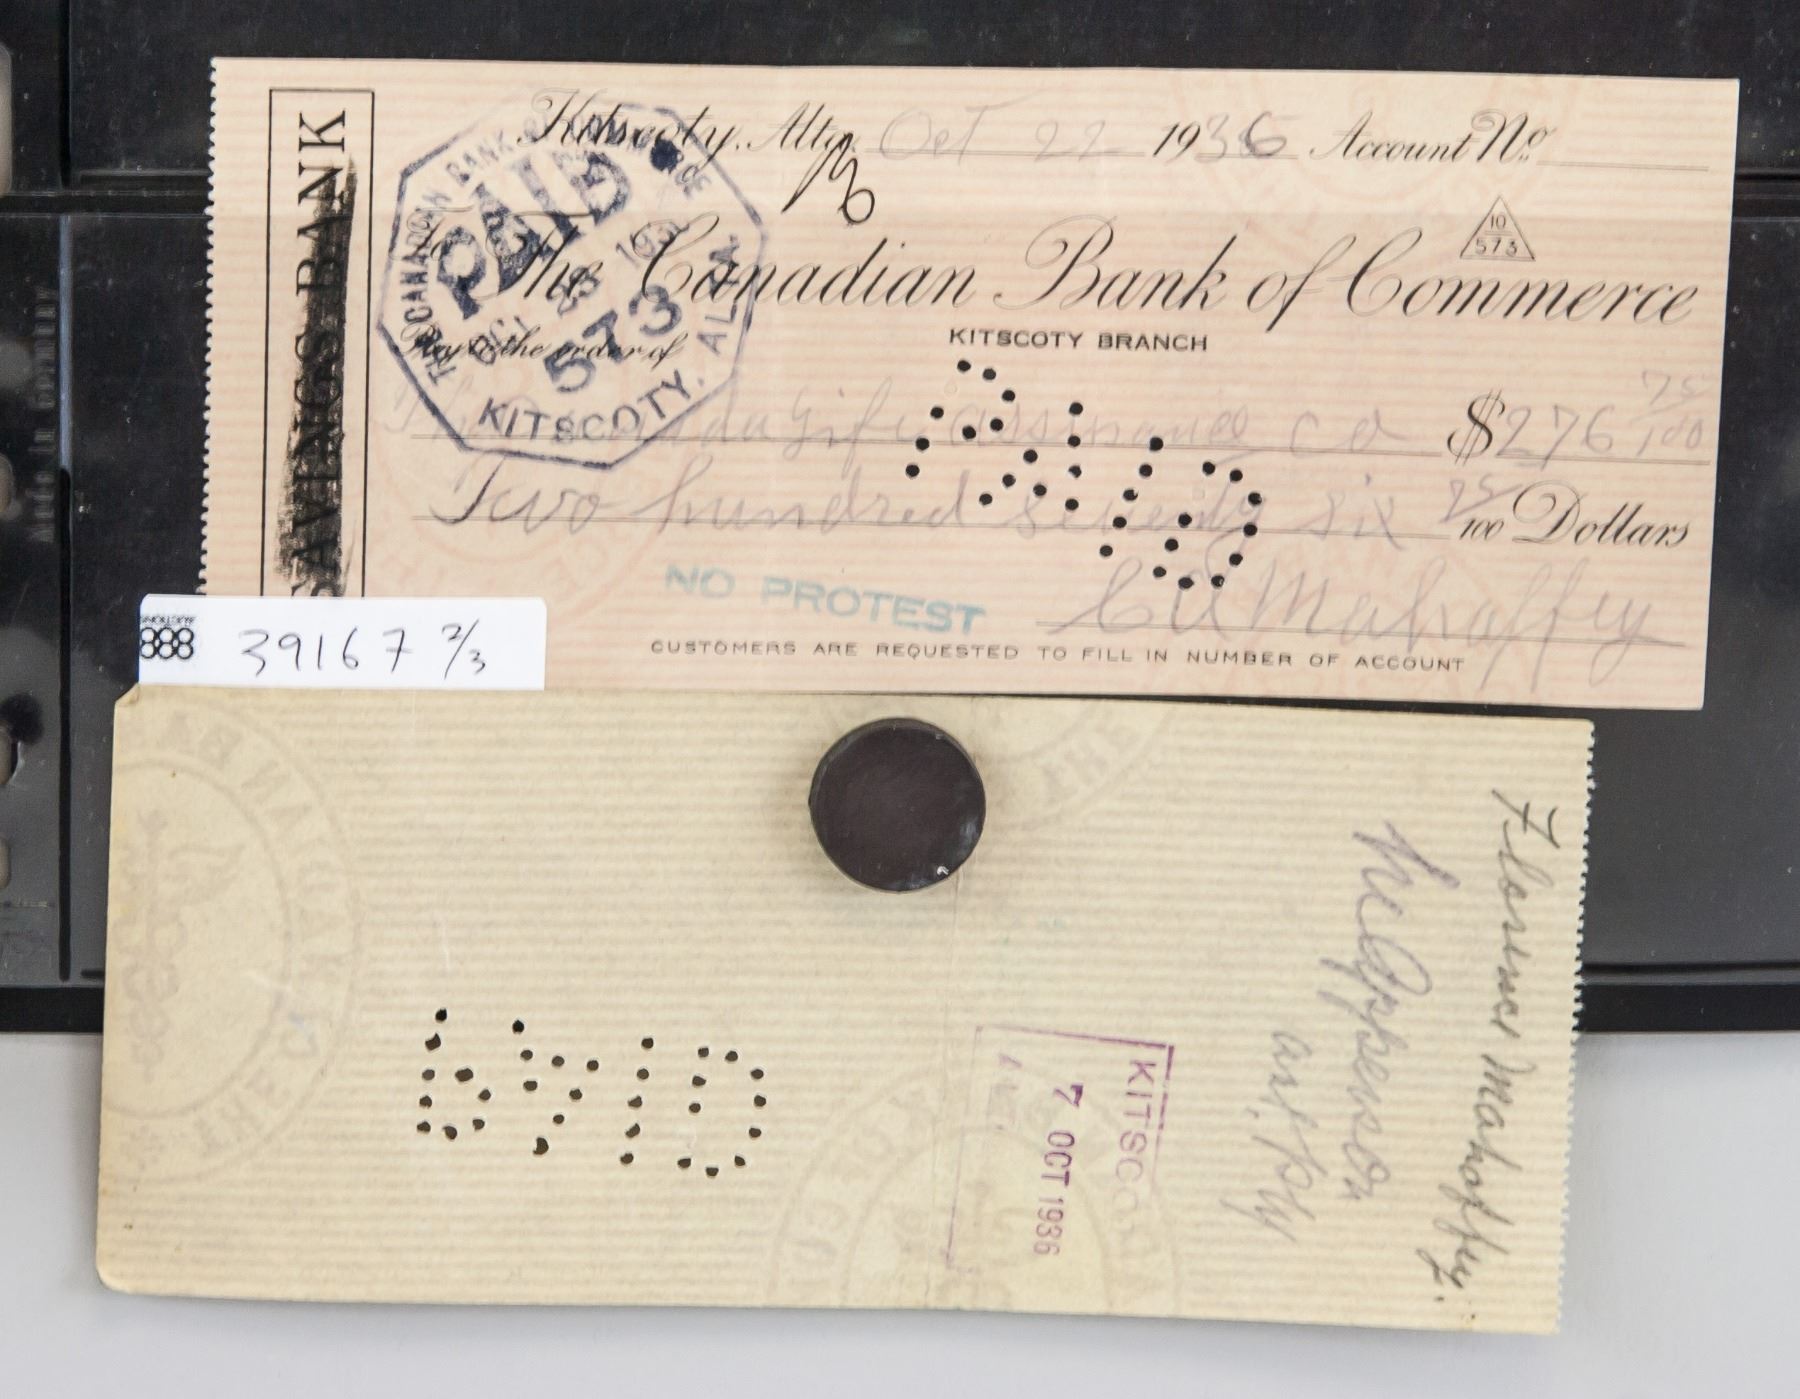 SAVINGS BANK
Kitscoty, Alta. Oct 22 1936 Account No.
10
573
The Canadian Bank of Commerce
KITSCOTY BRANCH
THE CANADIAN BANK OF COMMERCE
PAID
OCT 23 1936
573
KITSCOTY. ALTA.
Pay to the order of
The Canada Life assurance Co $276 75/100
Two hundred seventy six 75/100 Dollars
NO PROTEST
CU Mahaffey
CUSTOMERS ARE REQUESTED TO FILL IN NUMBER OF ACCOUNT
888 39167 2/3
Florence Mahaffey.
KITSCO
7 OCT 1936